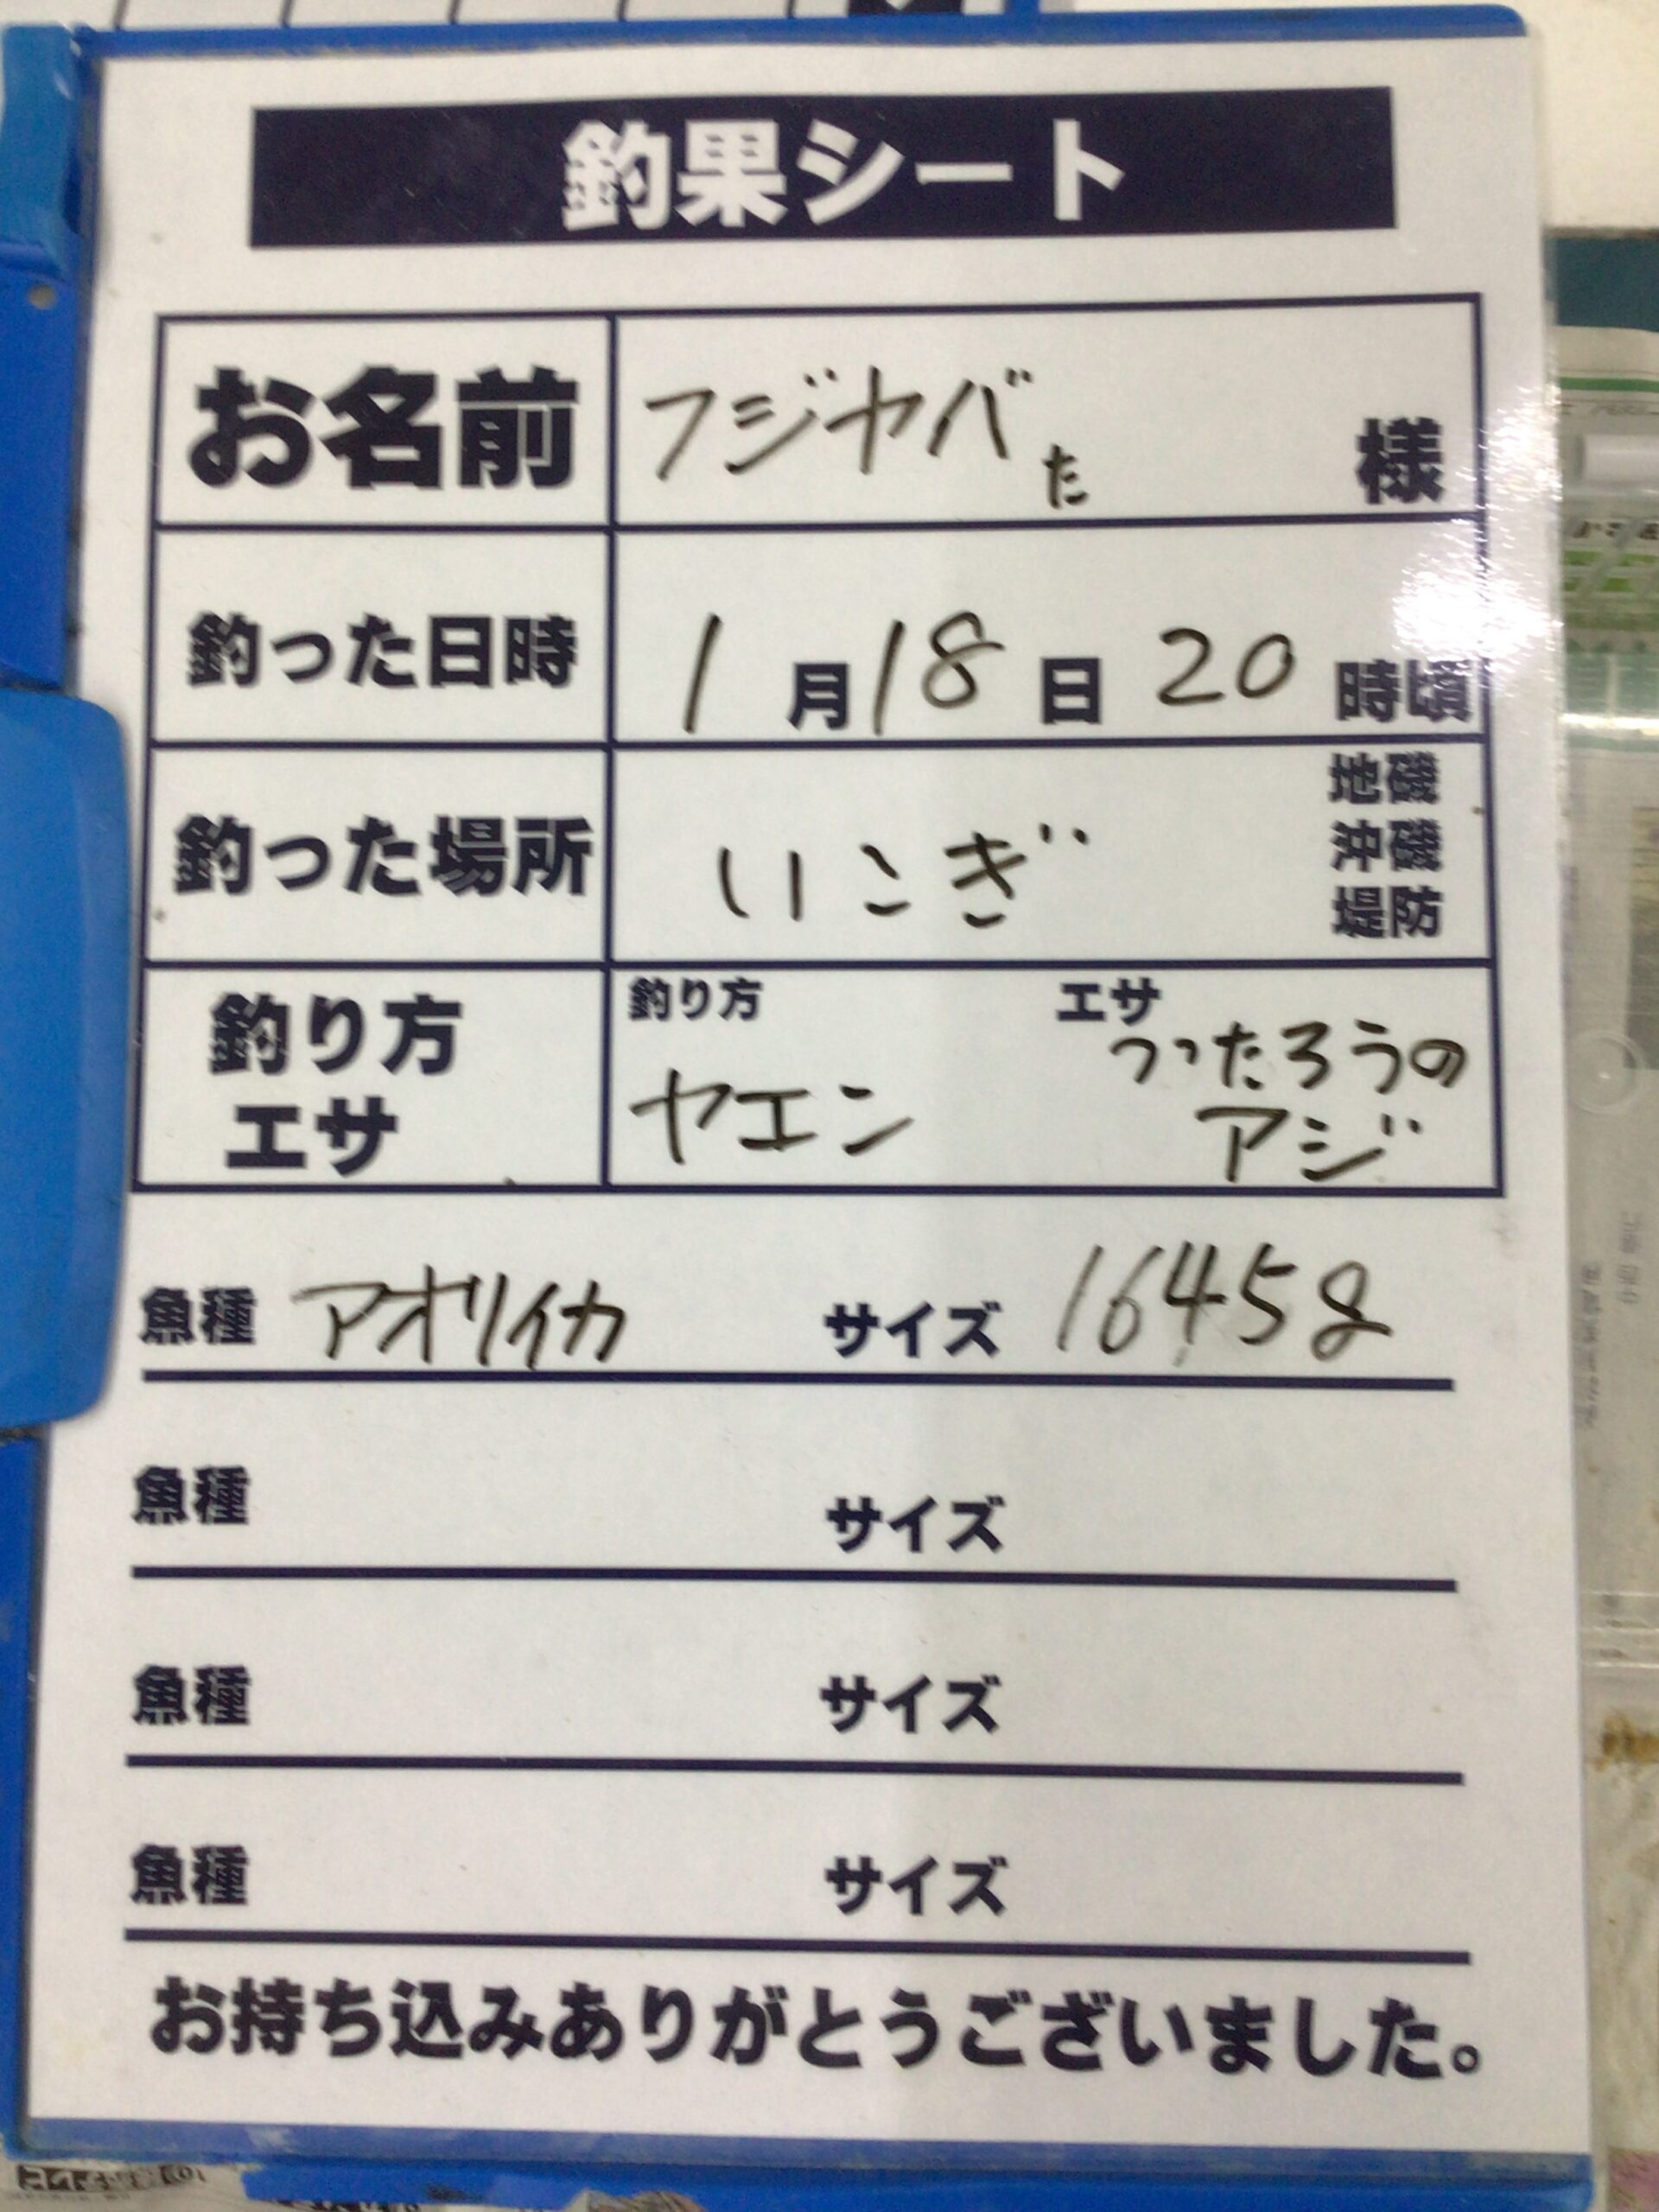 釣果シート
お名前 フジヤバた 様
釣った日時 1月18日 20時頃
釣った場所 いこぎ 地磯
沖磯
堤防
釣り方 エサ
釣り方 ヤエン
エサ つったろうの
アジ
魚種 アオリイカ サイズ 1645g
魚種 サイズ
魚種 サイズ
魚種 サイズ
お持ち込みありがとうございました。